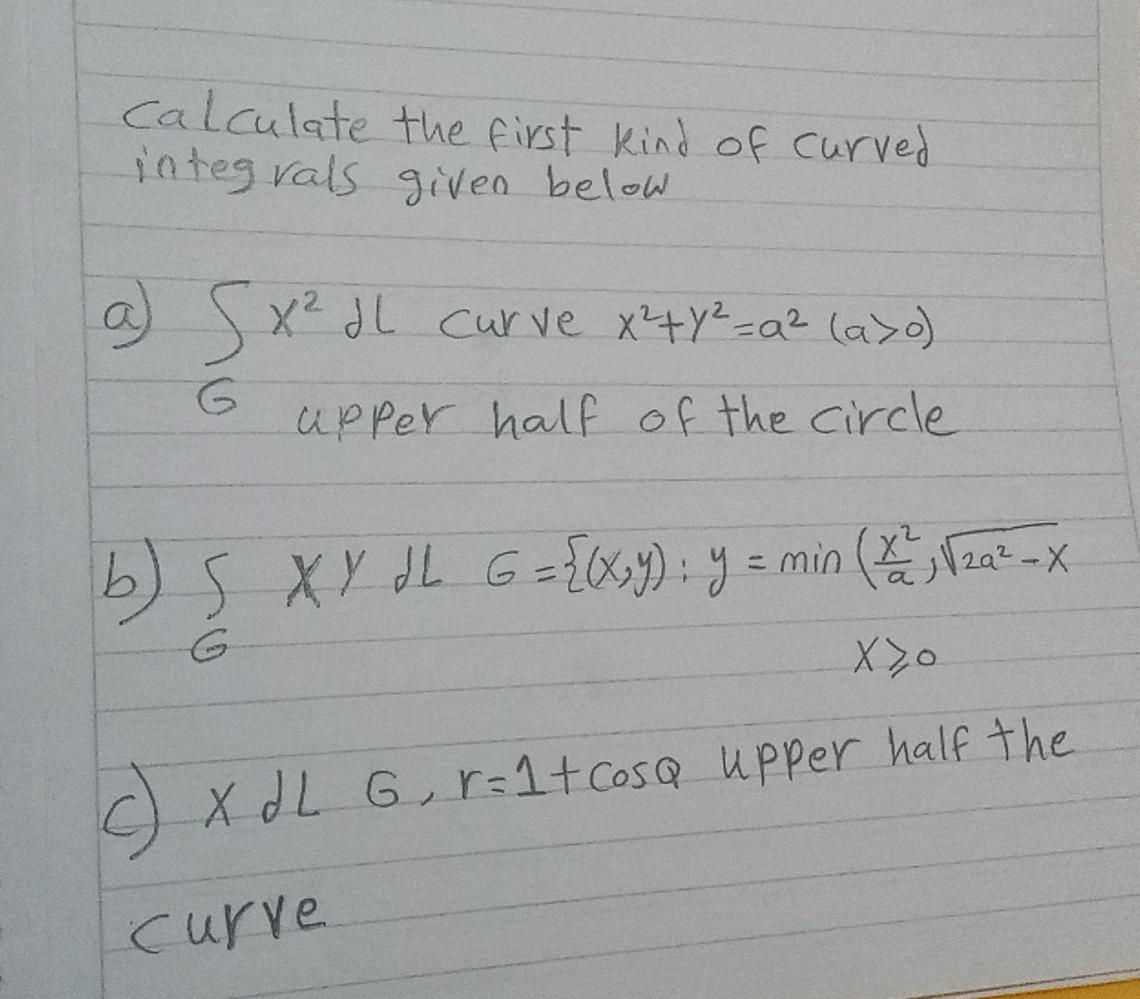 Calculate the first kind of curved
integrals given below
a) ∫ x² dL curve x²+y²=a² (a>0)
G
upper half of the circle
b) ∫ xy dL G={(x,y): y = min (x²/a, √2a²-x
G
x≥0
c) x dL G, r=1+cosQ upper half the
curve